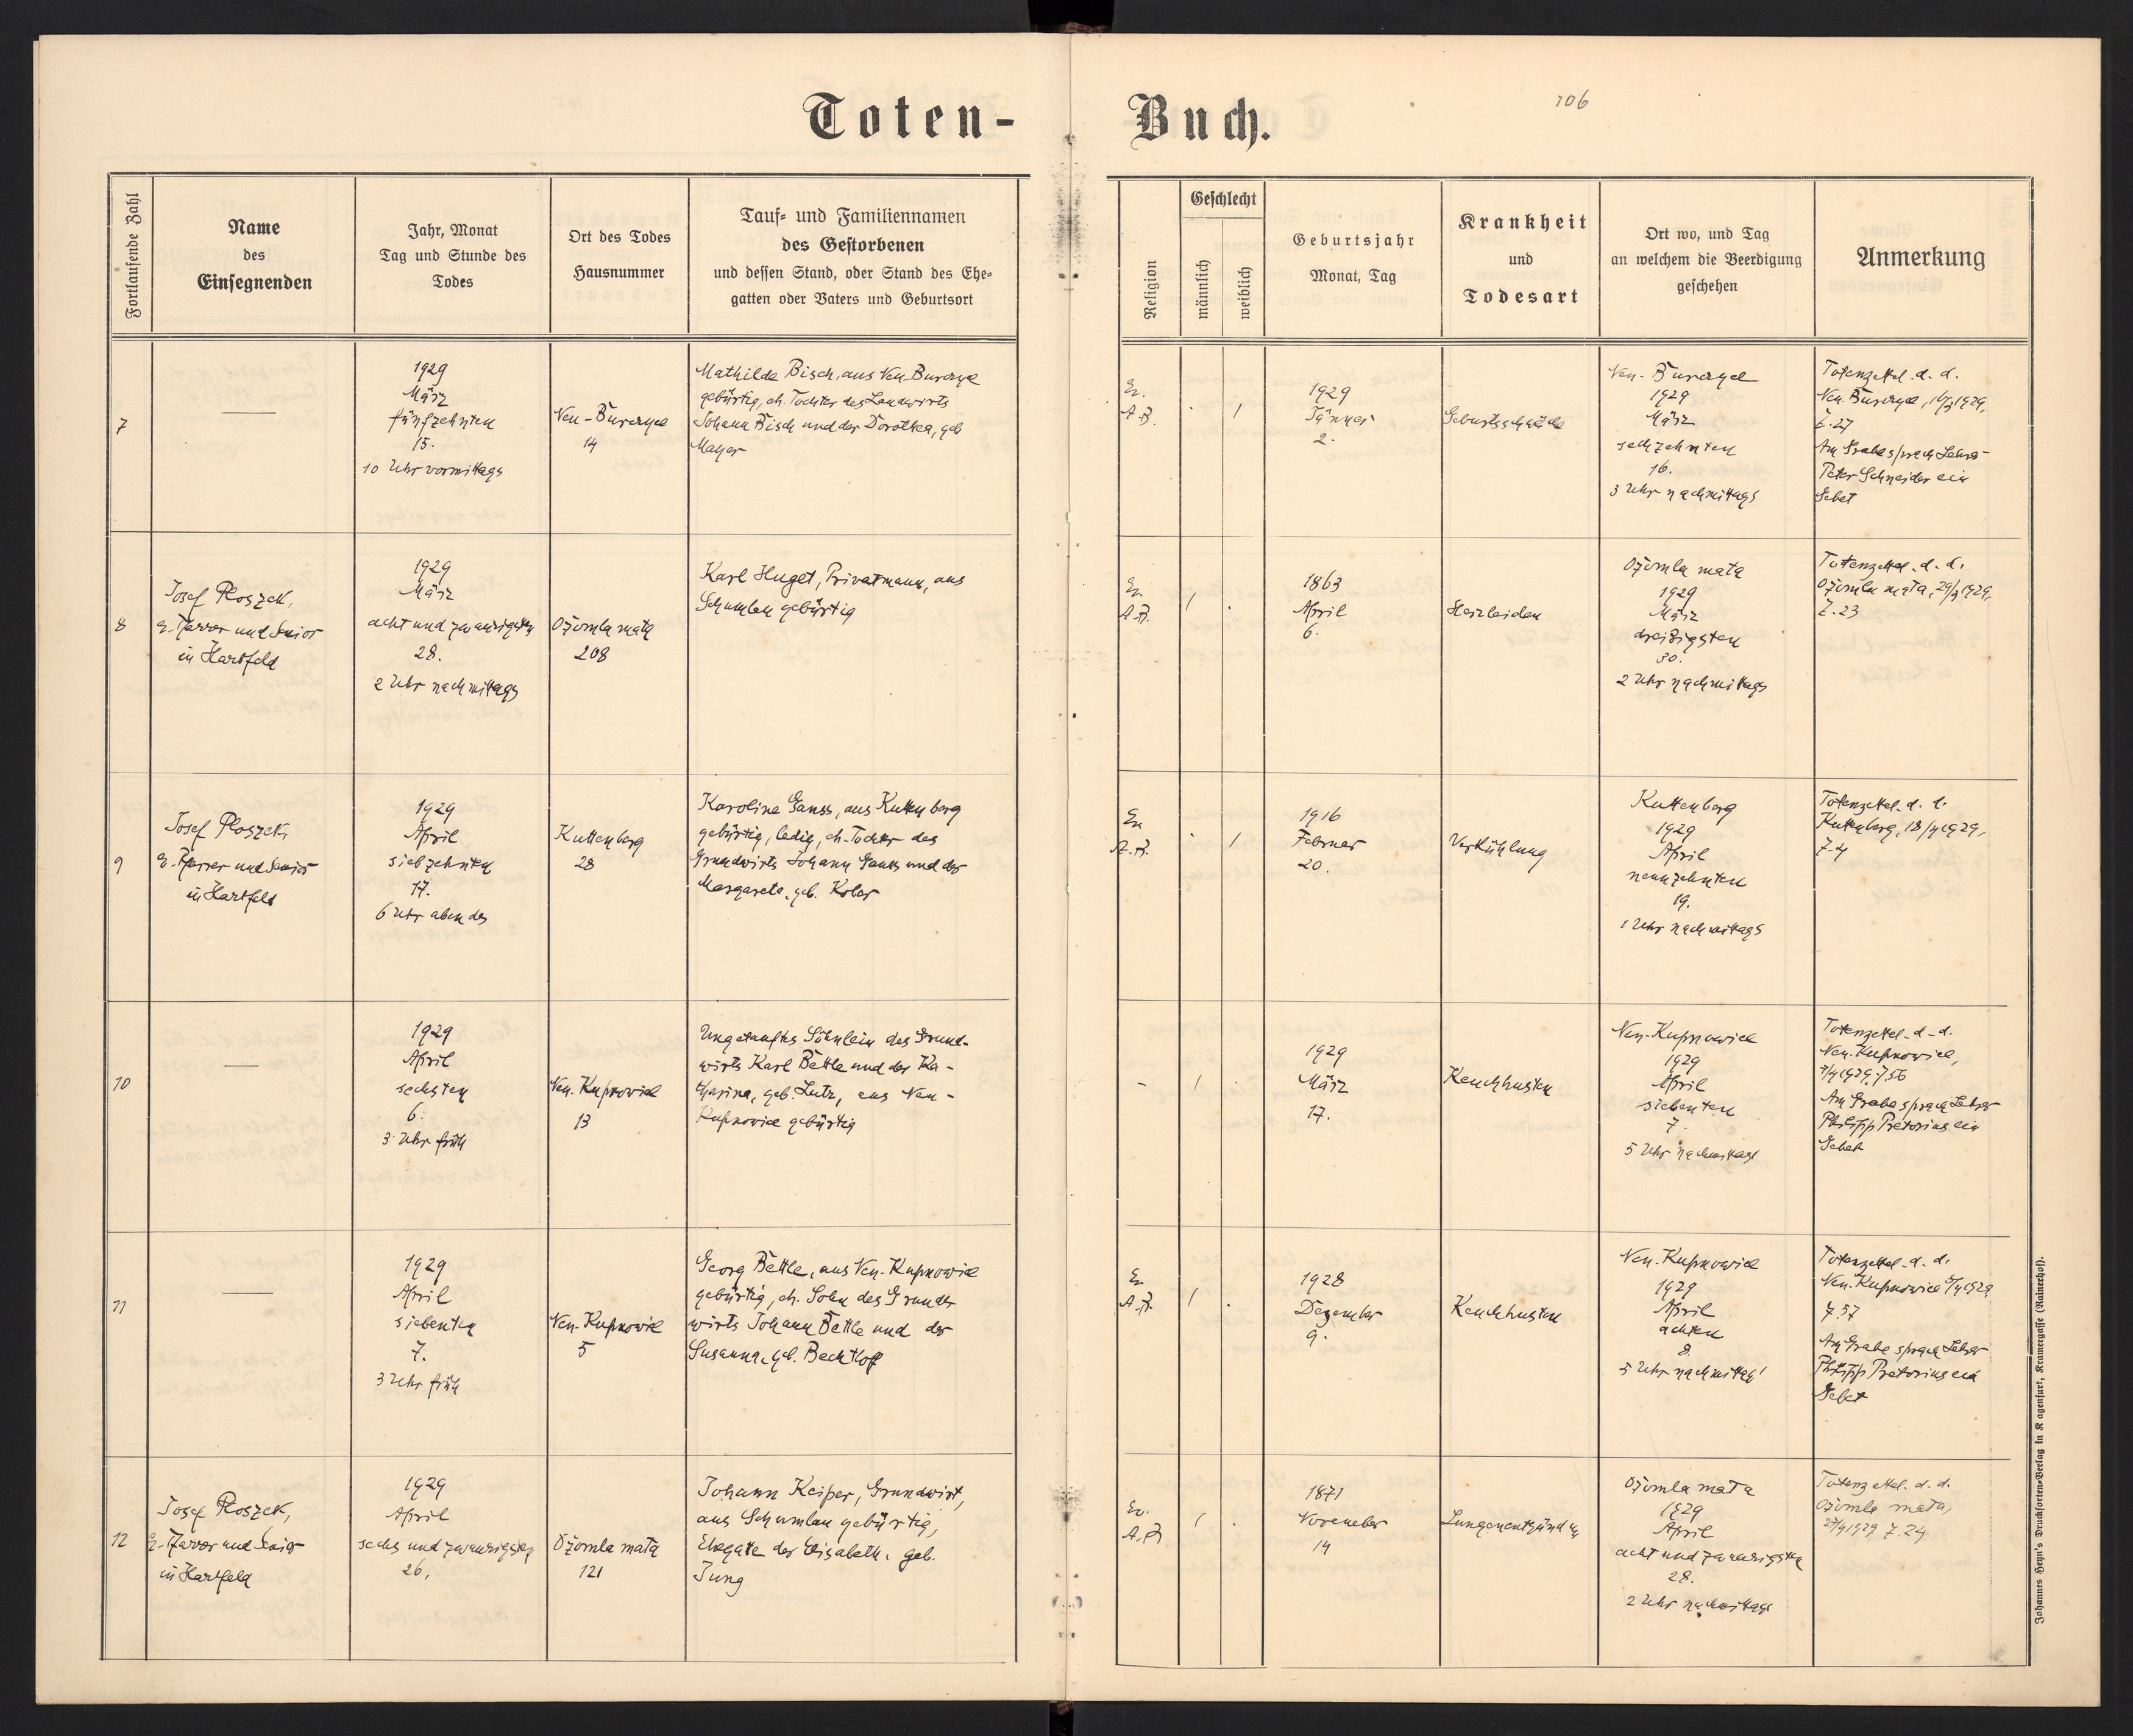 Toten-
Buch.
106
Fortlaufende Zahl
Name
des
Einsegnenden
Jahr, Monat
Tag und Stunde des
Todes
Ort des Todes
Hausnummer
Tauf- und Familiennamen
des Gestorbenen
und dessen Stand, oder Stand des Ehe-
gatten oder Vaters und Geburtsort
Religion
Geschlecht
männlich
weiblich
Geburtsjahr
Monat, Tag
Krankheit
und
Todesart
Ort wo, und Tag
an welchem die Beerdigung
geschehen
Anmerkung
7
—
1929
März
fünfzehnten
15.
10 Uhr vormittags
Neu-Burczyce
14
Mathilde Bisch, aus Neu-Burczyce
gebürtig, eh. Tochter des Landwirts
Johann Bisch und der Dorothea, geb
Mayer
Ev.
A.B.
.
1
1929
Jänner
2.
Geburtsschwäche
Neu-Burczyce
1929
März
sechzehnten
16.
3 Uhr nachmittags
Totenzettel d. d.
Neu-Burczyce, 16/3 1929,
Z. 27
Am Grabe sprach Lehrer
Peter Schneider ein
Gebet
8
Josef Ploszek,
e. Pfarrer und Senior
in Hartfeld
1929
März
acht und zwanzigsten
28.
2 Uhr nachmittags
Ożomla mała
208
Karl Huget, Privatmann, aus
Schumlau gebürtig
Ev.
A.B.
1
.
1863
April
6.
Herzleiden
Ożomla mała
1929
März
dreißigsten
30.
2 Uhr nachmittags
Totenzettel d. d.
Ożomla mała, 29/3 1929,
Z. 23
9
Josef Ploszek,
e. Pfarrer und Senior
in Hartfeld
1929
April
siebzehnten
17.
6 Uhr abends
Kuttenberg
28
Karolina Ganss, aus Kuttenberg
gebürtig, ledig, eh. Tochter des
Grundwirts Johann Ganss und der
Margarete, geb. Kolar
Ev.
A.B.
.
1
1916
Februar
20.
Verkühlung
Kuttenberg
1929
April
neunzehnten
19.
1 Uhr nachmittags
Totenzettel d. d.
Kuttenberg, 18/4 1929,
Z. 4
10
—
1929
April
sechsten
6.
3 Uhr früh
Neu-Kupnowice
13
Ungetauftes Söhnlein des Grund-
wirts Karl Bettle und der Ka-
tharina, geb. Lutz, aus Neu-
Kupnowice gebürtig
-
1
.
1929
März
17.
Keuchhusten
Neu-Kupnowice
1929
April
siebenten
7.
5 Uhr nachmittags
Totenzettel d. d.
Neu-Kupnowice,
7/4 1929, Z. 56
Am Grabe sprach Lehrer
Philipp Pretorius ein
Gebet
11
—
1929
April
siebenten
7.
3 Uhr früh
Neu-Kupnowice
5
Georg Bettle, aus Neu-Kupnowice
gebürtig, eh. Sohn des Grund-
wirts Johann Bettle und der
Susanna, geb. Bechtloff
Ev.
A.B.
1
.
1928
Dezember
9.
Keuchhusten
Neu-Kupnowice
1929
April
achten
8.
5 Uhr nachmittags
Totenzettel d. d.
Neu-Kupnowice 8/4 1929
Z. 57
Am Grabe sprach Lehrer
Philipp Pretorius ein
Gebet
12
Josef Ploszek,
e. Pfarrer und Senior
in Hartfeld
1929
April
sechs und zwanzigsten
26.
Ożomla mała
121
Johann Keiper, Grundwirt,
aus Schumlau gebürtig,
Ehegatte der Elisabeth, geb.
Jung
Ev.
A.B.
1
.
1871
November
14
Lungenentzündung
Ożomla mała
1929
April
acht und zwanzigsten
28.
2 Uhr nachmittags
Totenzettel d. d.
Ożomla mała,
27/4 1929 Z. 24
Johannes Heyn's Drucksorten-Verlag in Klagenfurt, Kramergasse (Rainerhof).